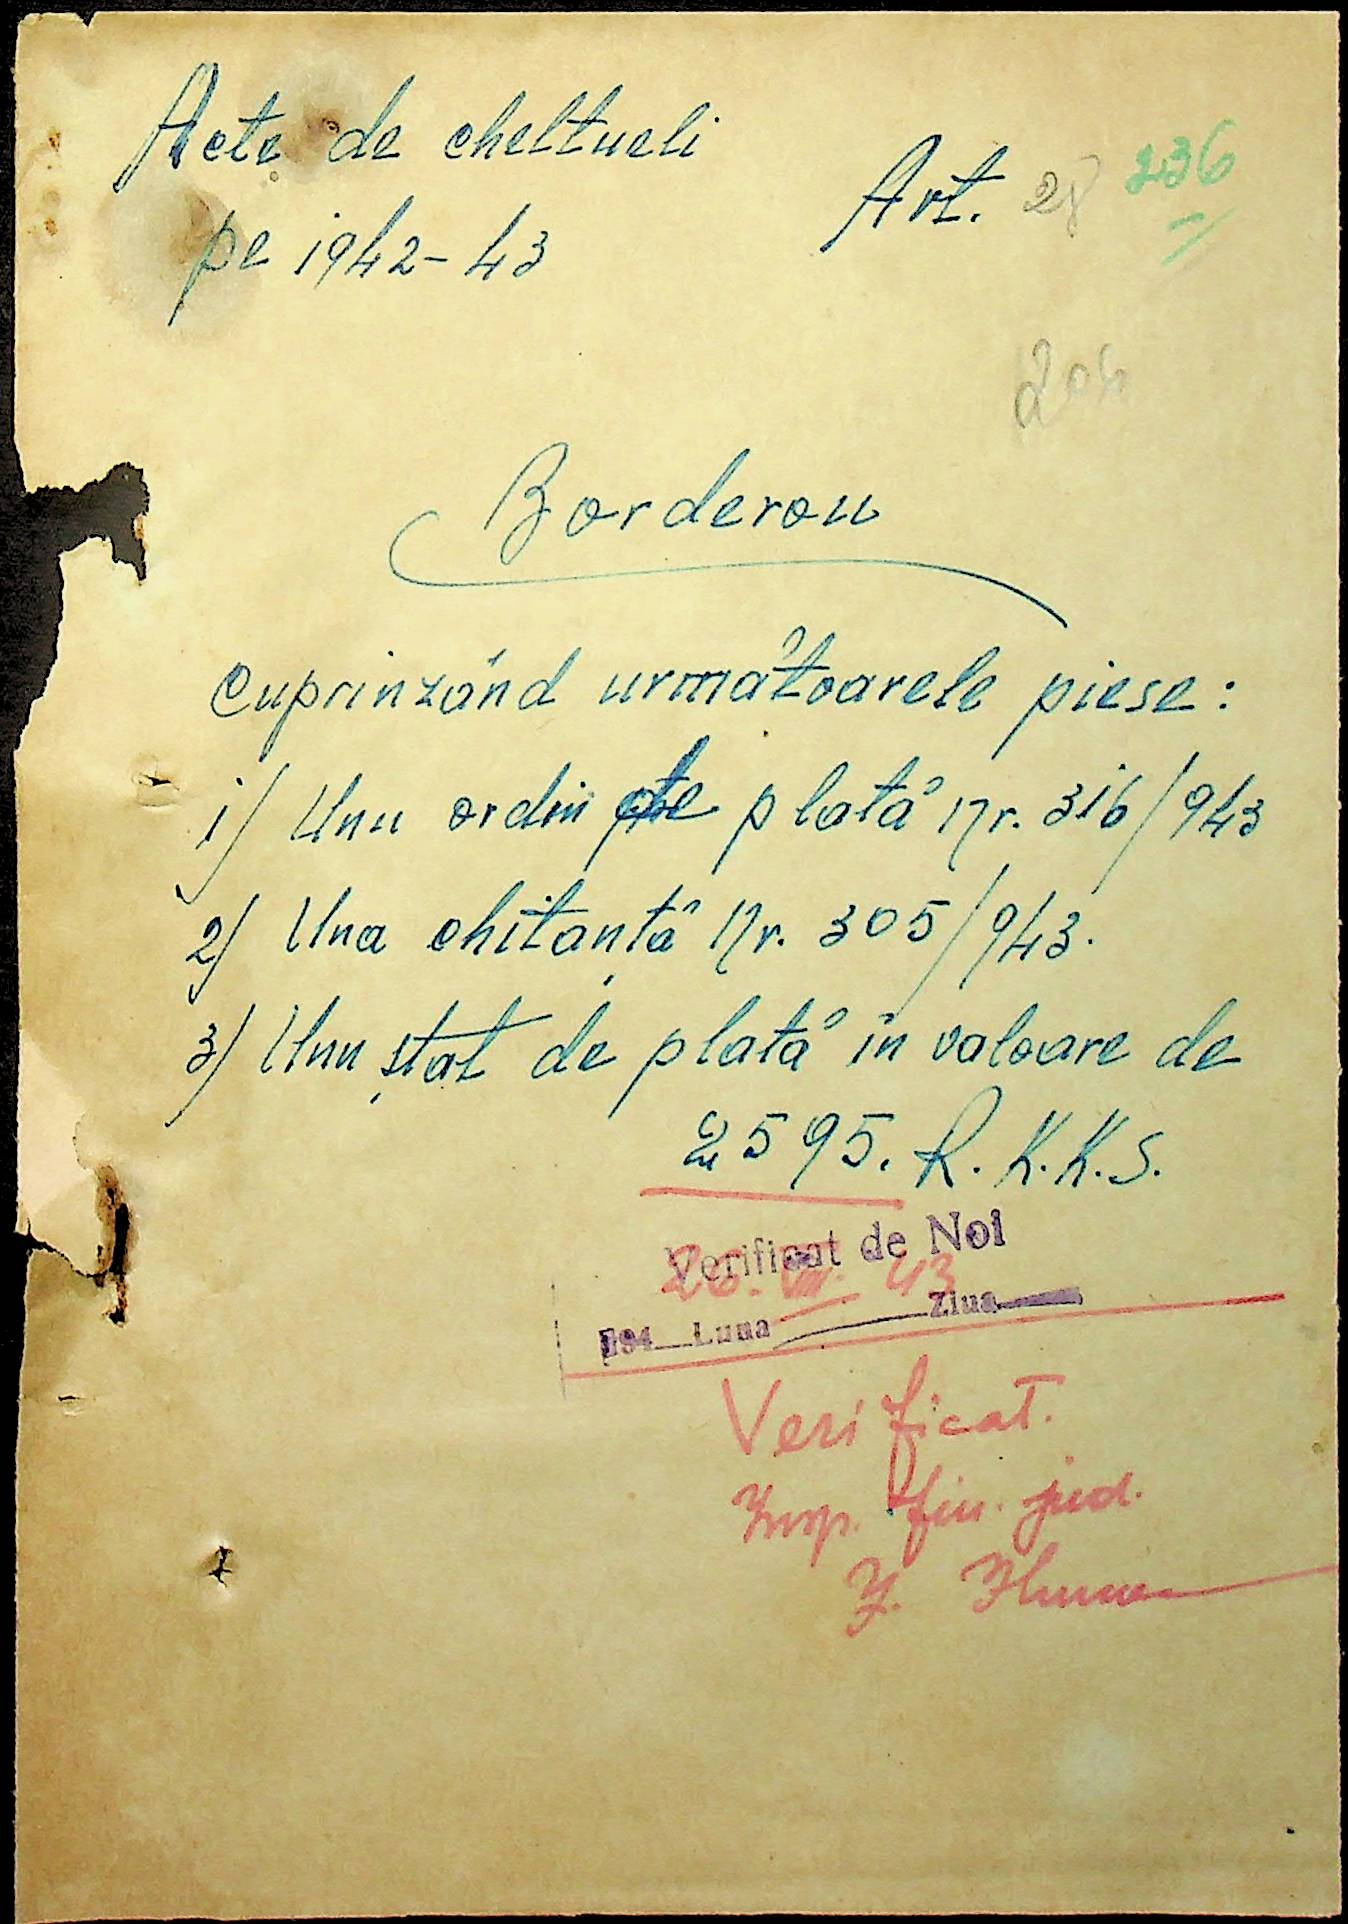 Acte de cheltueli
Art. 236
pe 1942-43
Borderou
Cuprinzând următoarele piese:
1/ Unu ordin de plată nr. 316/943
2/ Una chitanță Nr. 305/943.
3/ Unu ștat de plată în valoare de
2595. R.K.K.S.
Verificat de Noi
26. VII. 43
194 Luna Ziua
Verificat.
Insp. fin. jud.